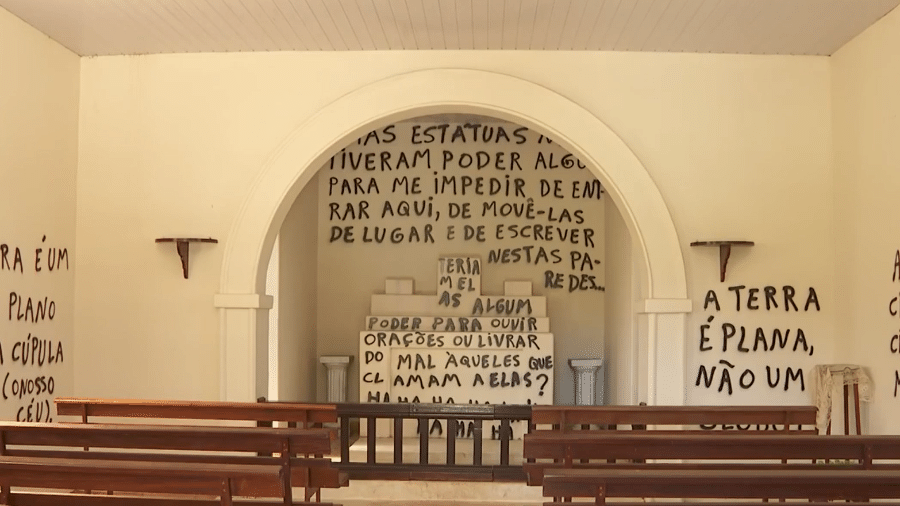 É UM
PLANO
CÚPULA
(O NOSSO
CÉU).
ESTATUAS
TIVERAM PODER
PARA ME IMPEDIR DE EN-
RAR AQUI, DE MOVÊ-LAS
DE LUGAR E DE ESCREVER
NESTAS PA-
REDES...
TERIA
M EL
AS ALGUM
PODER PARA OUVIR
ORAÇÕES OU LIVRAR
DO MAL ÀQUELES QUE
CLAMAM A ELAS?
HA HA HA
HA HA
A TERRA
É PLANA,
NÃO UM